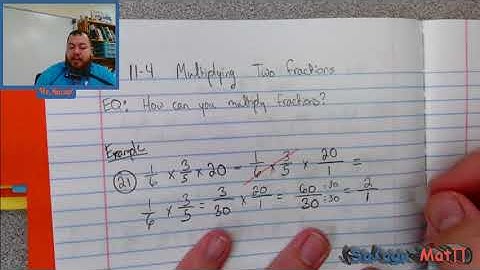 11-4 Multiplying Two Fractions
EQ: How can you multiply fractions?
Example
21) 1/6 × 3/5 × 20 = 1/6 × 3/5 × 20/1 =
1/6 × 3/5 = 3/30 × 20/1 = 60/30 ÷30/÷30 = 2/1
Savage Math